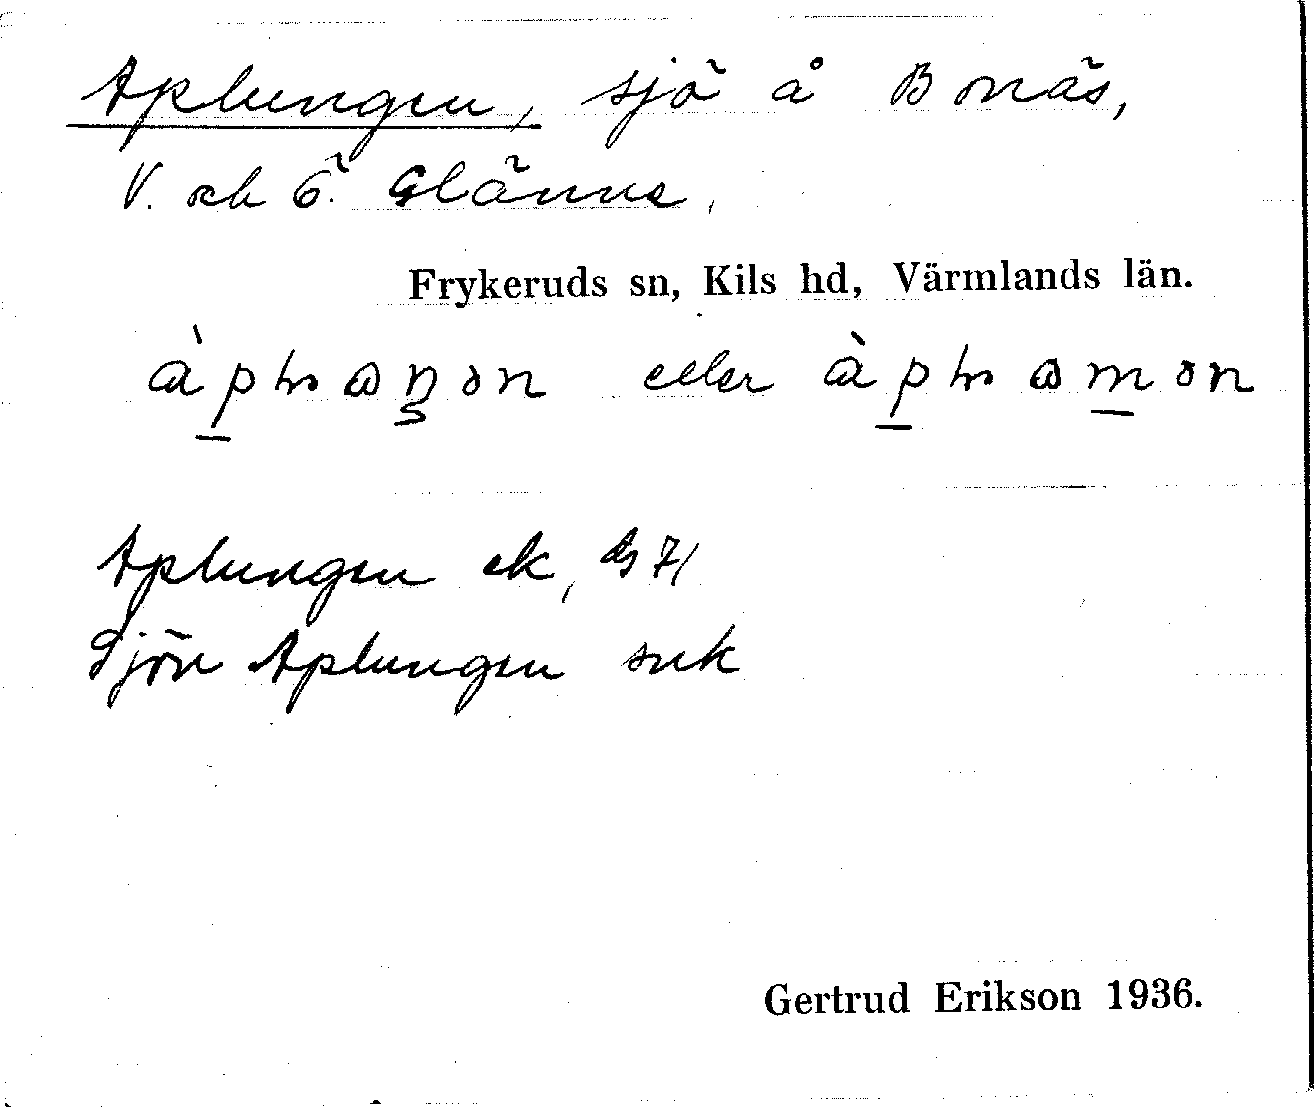 Aplungen, sjö å Bonäs,
V. och Ö. Glänne,
Frykeruds sn, Kils hd, Värmlands län.
eller
Aplungen ek,
Sjön Aplungen snk
Gertrud Erikson 1936.